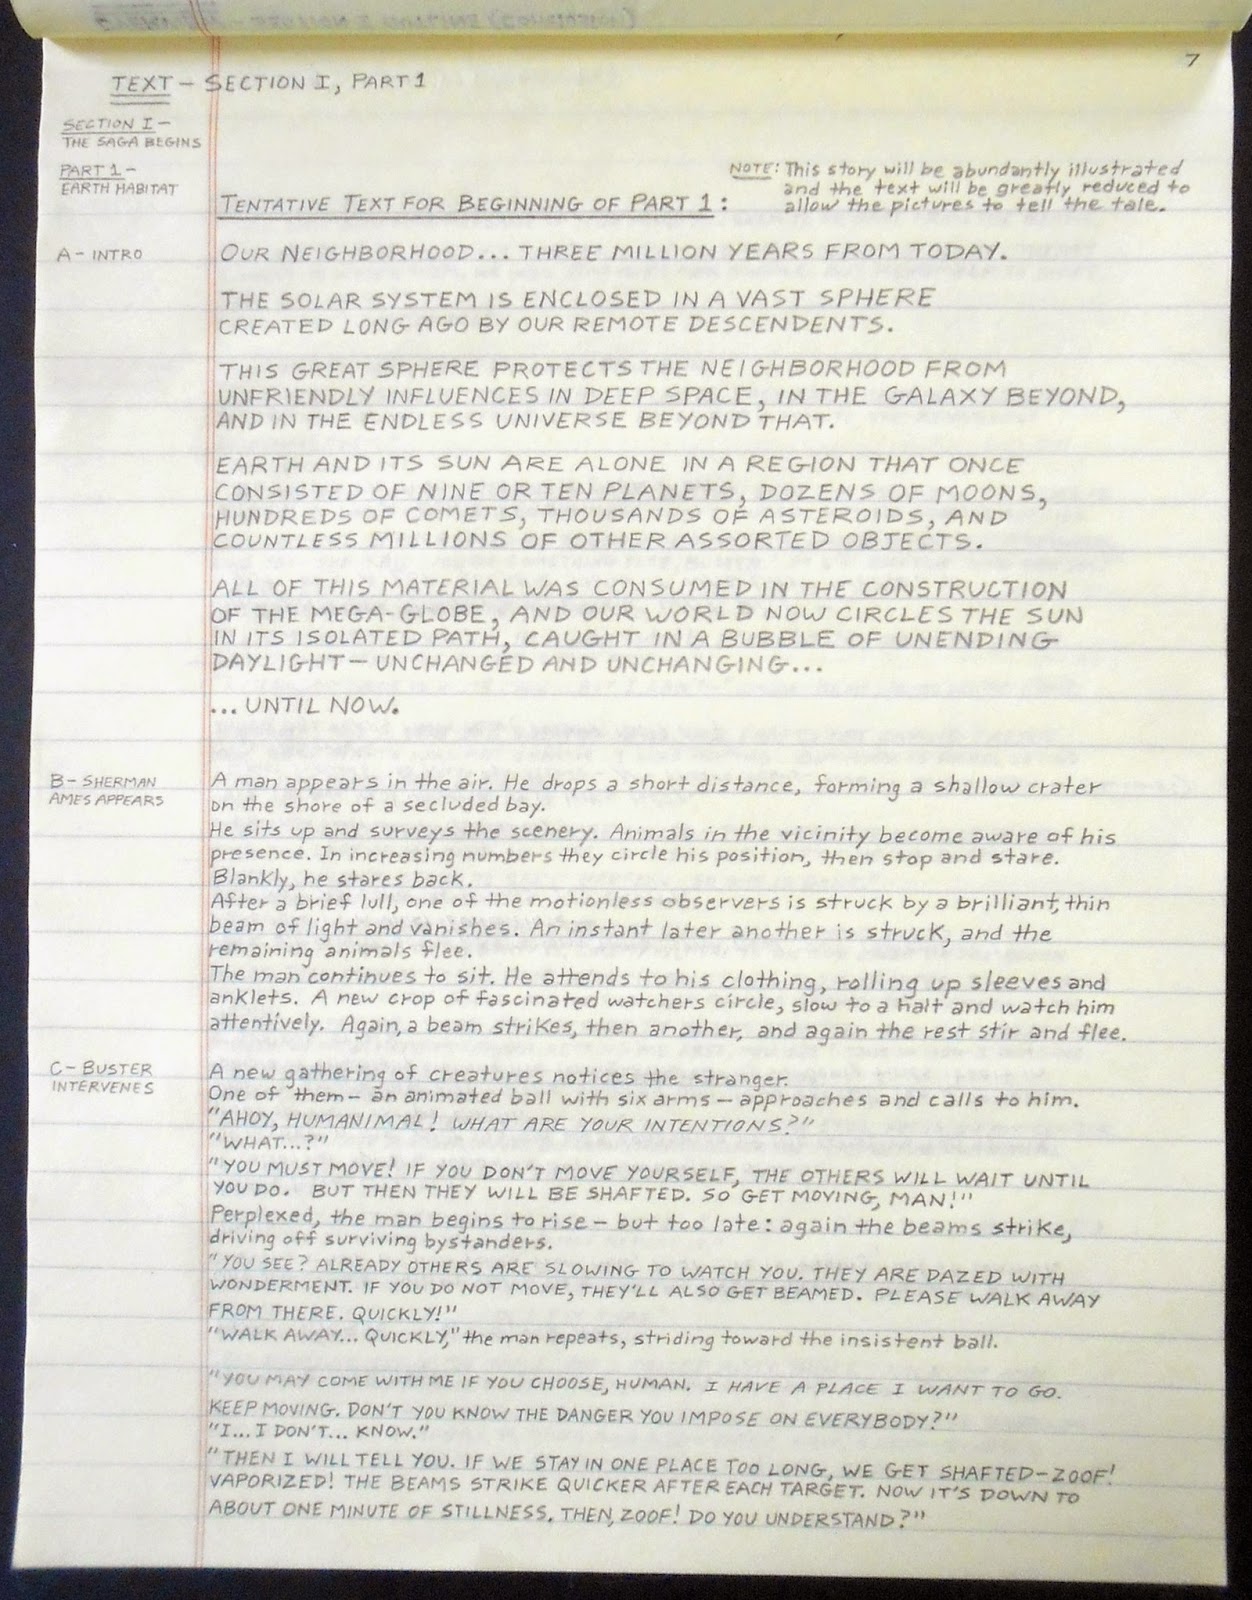 7
TEXT — SECTION I, PART 1
SECTION I —
THE SAGA BEGINS
PART 1 —
EARTH HABITAT
NOTE: This story will be abundantly illustrated
and the text will be greatly reduced to
allow the pictures to tell the tale.
TENTATIVE TEXT FOR BEGINNING OF PART 1:
A — INTRO
OUR NEIGHBORHOOD... THREE MILLION YEARS FROM TODAY.
THE SOLAR SYSTEM IS ENCLOSED IN A VAST SPHERE
CREATED LONG AGO BY OUR REMOTE DESCENDENTS.
THIS GREAT SPHERE PROTECTS THE NEIGHBORHOOD FROM
UNFRIENDLY INFLUENCES IN DEEP SPACE, IN THE GALAXY BEYOND,
AND IN THE ENDLESS UNIVERSE BEYOND THAT.
EARTH AND ITS SUN ARE ALONE IN A REGION THAT ONCE
CONSISTED OF NINE OR TEN PLANETS, DOZENS OF MOONS,
HUNDREDS OF COMETS, THOUSANDS OF ASTEROIDS, AND
COUNTLESS MILLIONS OF OTHER ASSORTED OBJECTS.
ALL OF THIS MATERIAL WAS CONSUMED IN THE CONSTRUCTION
OF THE MEGA-GLOBE, AND OUR WORLD NOW CIRCLES THE SUN
IN ITS ISOLATED PATH, CAUGHT IN A BUBBLE OF UNENDING
DAYLIGHT — UNCHANGED AND UNCHANGING...
...UNTIL NOW.
B — SHERMAN
AMES APPEARS
A man appears in the air. He drops a short distance, forming a shallow crater
on the shore of a secluded bay.
He sits up and surveys the scenery. Animals in the vicinity become aware of his
presence. In increasing numbers they circle his position, then stop and stare.
Blankly, he stares back.
After a brief lull, one of the motionless observers is struck by a brilliant, thin
beam of light and vanishes. An instant later another is struck, and the
remaining animals flee.
The man continues to sit. He attends to his clothing, rolling up sleeves and
anklets. A new crop of fascinated watchers circle, slow to a halt and watch him
attentively. Again, a beam strikes, then another, and again the rest stir and flee.
C — BUSTER
INTERVENES
A new gathering of creatures notices the stranger.
One of them — an animated ball with six arms — approaches and calls to him.
"AHOY, HUMANIMAL! WHAT ARE YOUR INTENTIONS?"
"WHAT...?"
"YOU MUST MOVE! IF YOU DON'T MOVE YOURSELF, THE OTHERS WILL WAIT UNTIL
YOU DO. BUT THEN THEY WILL BE SHAFTED. SO GET MOVING, MAN!"
Perplexed, the man begins to rise — but too late: again the beams strike,
driving off surviving bystanders.
"YOU SEE? ALREADY OTHERS ARE SLOWING TO WATCH YOU. THEY ARE DAZED WITH
WONDERMENT. IF YOU DO NOT MOVE, THEY'LL ALSO GET BEAMED. PLEASE WALK AWAY
FROM THERE. QUICKLY!"
"WALK AWAY... QUICKLY," the man repeats, striding toward the insistent ball.
"YOU MAY COME WITH ME IF YOU CHOOSE, HUMAN. I HAVE A PLACE I WANT TO GO.
KEEP MOVING. DON'T YOU KNOW THE DANGER YOU IMPOSE ON EVERYBODY?"
"I... I DON'T... KNOW."
"THEN I WILL TELL YOU. IF WE STAY IN ONE PLACE TOO LONG, WE GET SHAFTED — ZOOF!
VAPORIZED! THE BEAMS STRIKE QUICKER AFTER EACH TARGET. NOW IT'S DOWN TO
ABOUT ONE MINUTE OF STILLNESS. THEN, ZOOF! DO YOU UNDERSTAND?"